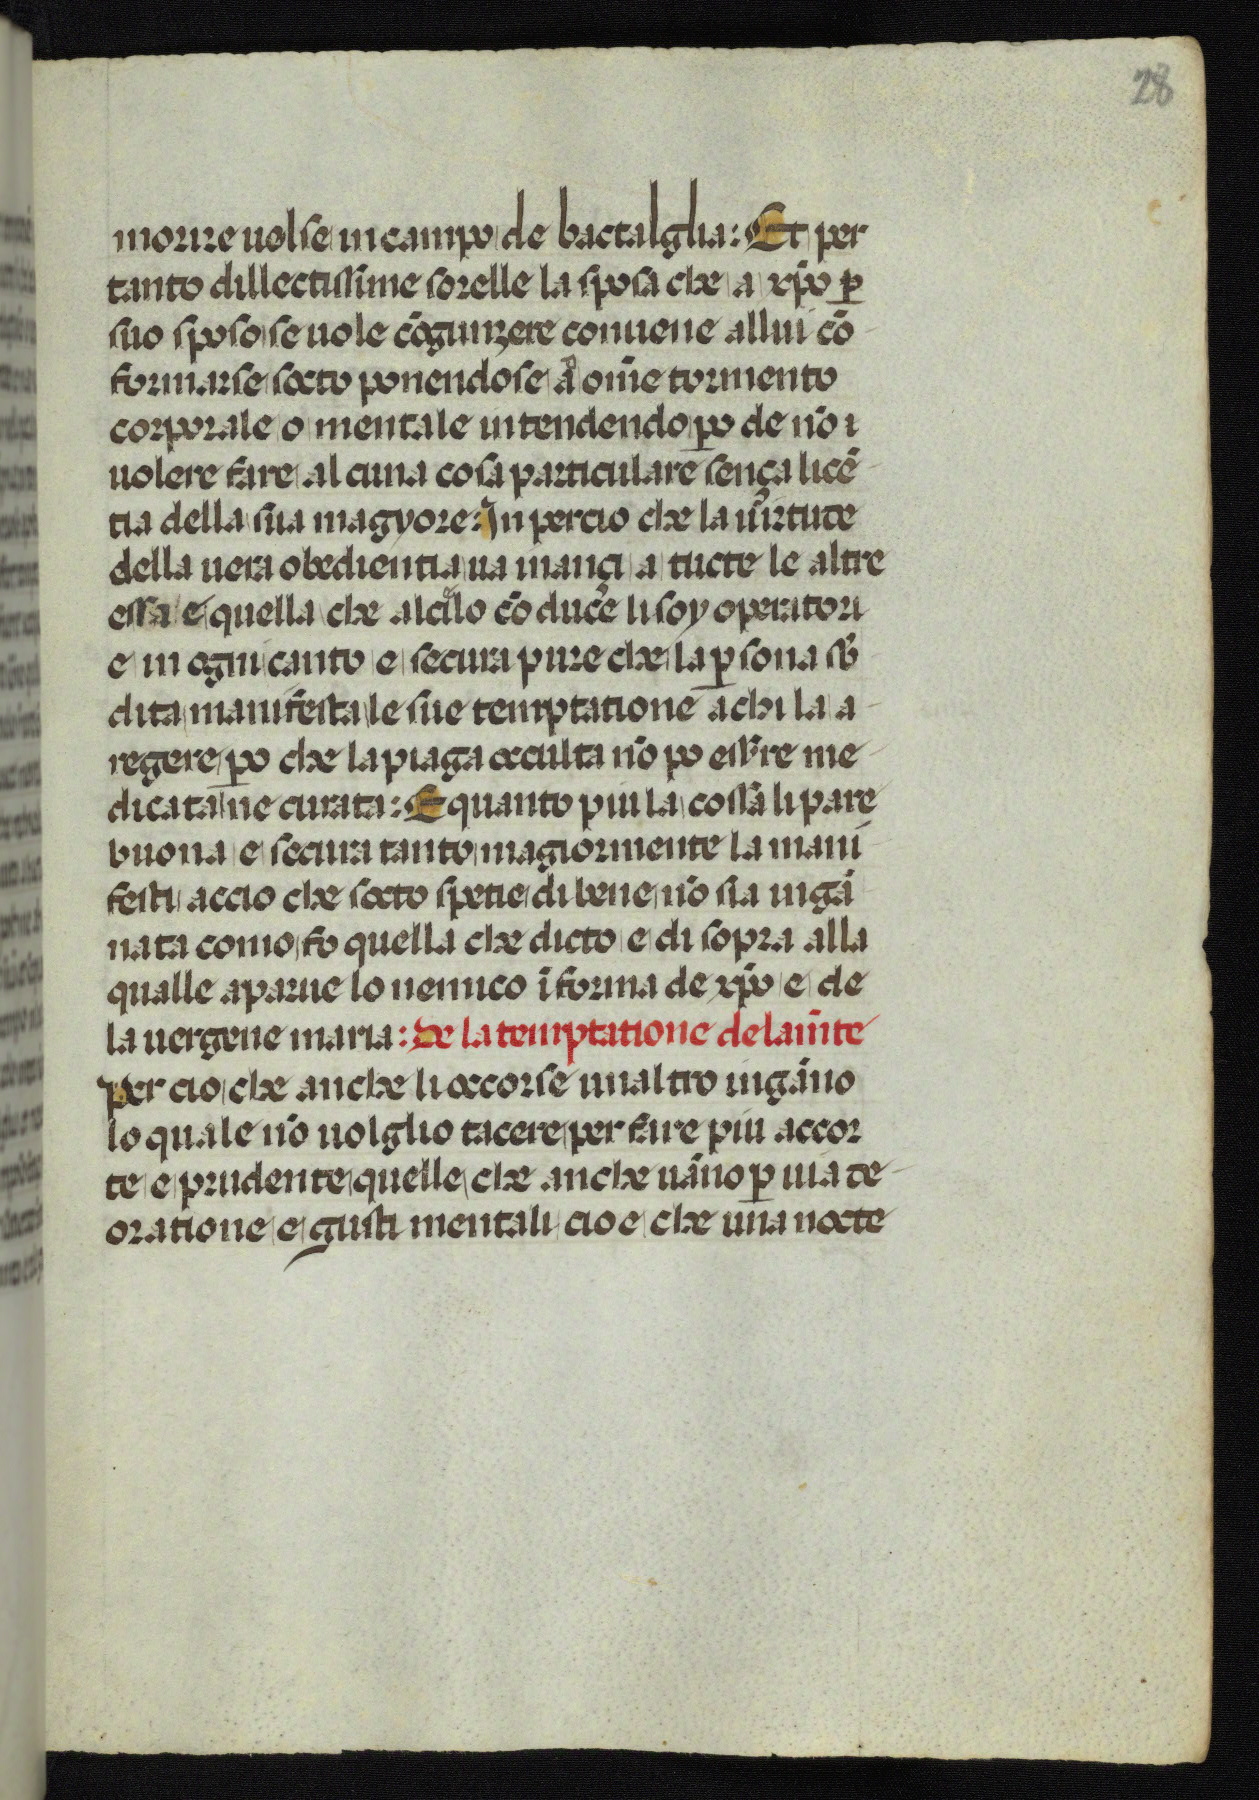 28
morire uolse in campo de bactalglia: Et per
tanto dillectissime sorelle la sposa che a xp̄o ꝑ
suo sposo se uole cōgunzere conuene allui cō
formarse socto ponendose a om̄e tormento
corporale o mentale intendendo ꝑo de nō i
uolere fare alcuna cosa particulare sença licē
tia della sua magyore: In percio che la uirtute
della uera obedientia ua inançi a tucte le altre
essa e quella che alcilo cōduce li soy operatori
e in ogni canto e secura pure che la ꝑsona sb̄
dita manifesta le sue temptatione a chi la a
regere ꝑo che la piaga occulta nō po essere me
dicata ne curata: E quanto piu la cossa li pare
buona e secura tanto magiormente la mani
festi accio che socto spetie di bene nō sia ingā
nata como fo quella che dicto e di sopra alla
qualle aparue lo nemico ī forma de xp̄o e de
la uergene maria: De la temptatione de la m̄te
Per cio che anche li occorse unaltro ingāno
lo quale nō uolglio tacere per fare piu accor
te e prudente quelle che anche uāno ꝑ uia de
oratione e gusti mentali cioe che una nocte